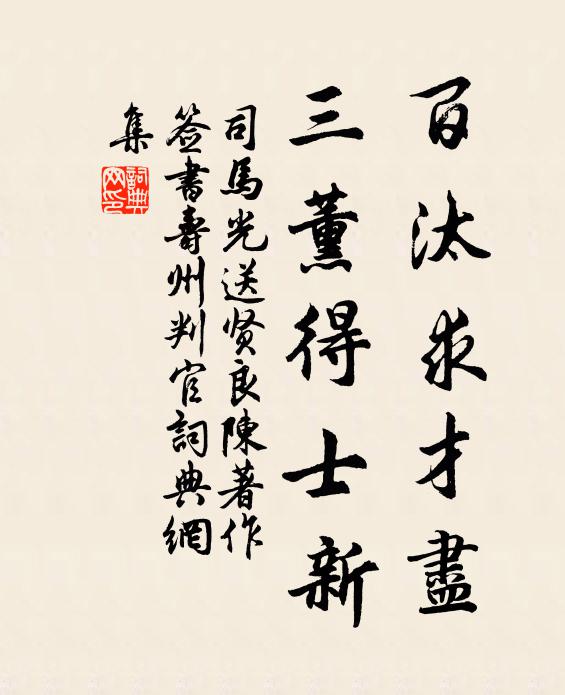 百汰求才盡
三薰得士新
司馬光送贤良陳著作
签書壽州判官詞典網
集
詞典网印